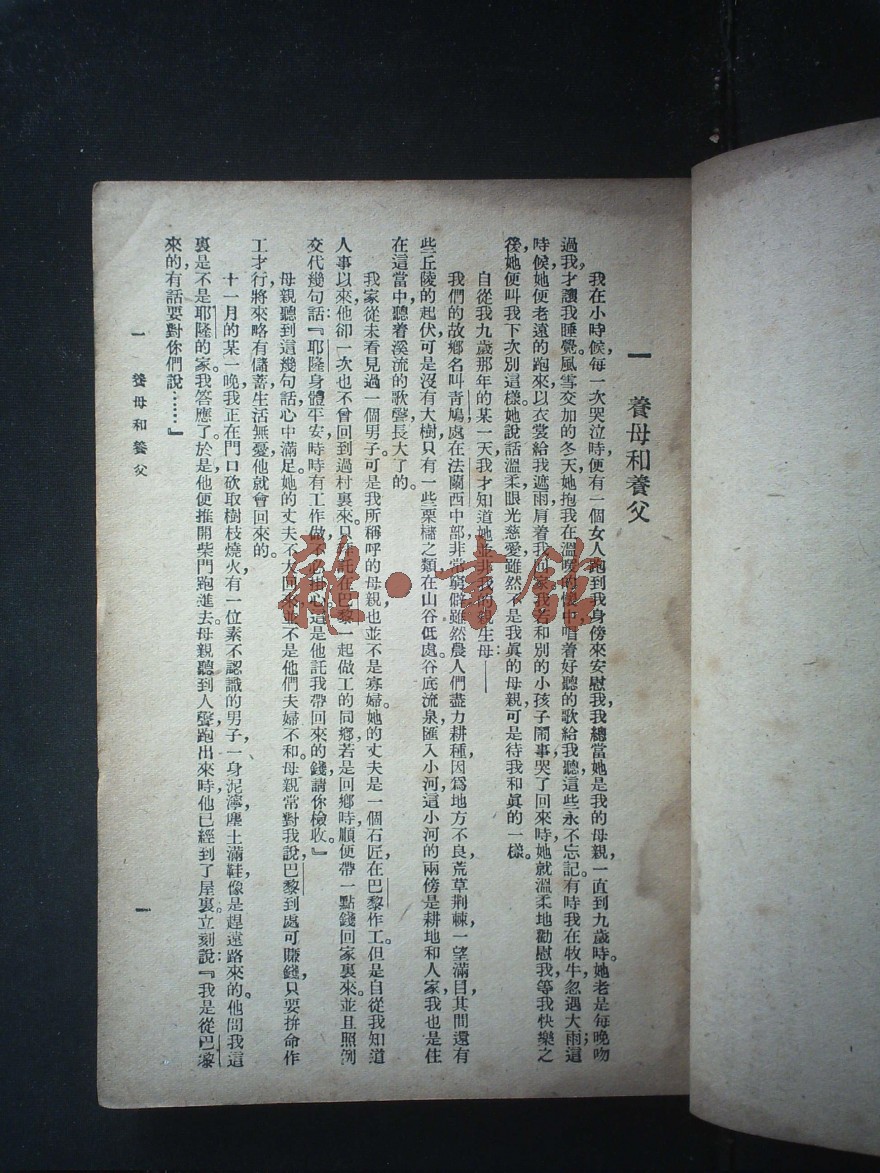 一　養母和養父
我在小時候，每一次哭泣時，便有一個女人跑到我身傍來安慰我，我總當她是我的母親，一直到九歲時。她老是每晚吻
過我，才讓我睡覺。風雪交加的冬天，她抱我在溫暖的懷中，唱着好聽的歌給我聽，這些永不忘記。有時我在牧牛，忽遇大雨；這
時候，她便老遠的跑來，以衣裳給我遮雨，肩着我回家。我若和別的小孩子鬧事，哭了回來時，她就溫柔地勸慰我，等我快樂之
後，她便叫我下次別這樣。她說話溫柔，眼光慈愛，雖然不是我眞的母親，可是待我和眞的一樣。
自從我九歲那年的某一天，我才知道她並非我的親生母：——
我們的故鄉名叫靑鳩，處在法蘭西中部，非常窮僻，雖然農人們盡力耕種，因爲地方不良，荒草荆棘，一望滿目，其間還有
些丘陵的起伏，可是沒有大樹，只有一些栗櫧之類，在山谷低處，谷底流泉，匯入小河，這小河的兩傍是耕地和人家，我也是住
在這當中，聽着溪流的歌聲長大了的。
我家從未看見過一個男子。可是我所稱呼的母親，也並不是寡婦，她的丈夫是一個石匠，在巴黎作工。但是自從我知道
人事以來，他卻一次也不曾回到過村裏來。只時託在巴黎一起做工的同鄉，若是回鄉時，順便帶一點錢回家裏來。並且照例
交代幾句話：『耶隆身體平安，時時有工作做，不必掛心，這是他託我帶回來的錢，請你檢收。』
母親聽到這幾句話，心中滿足。她的丈夫不大回來，並不是他們夫婦不和。母親常對我說，巴黎到處可賺錢，只要拚命作
工才行，將來略有儲蓄，生活無憂，他就會回來的。
十一月的某一晚，我正在門口砍取樹枝燒火，有一位素不認識的男子，一身泥濘，塵土滿鞋，像是趕遠路來的。他問我這
裏是不是耶隆的家。我答應了。於是，他便推開柴門跑進去。母親聽到人聲，跑出來時，他已經到了屋裏。立刻說：『我是從巴黎
來的，有話要對你們說……』
一　養母和養父
一
雜·書館